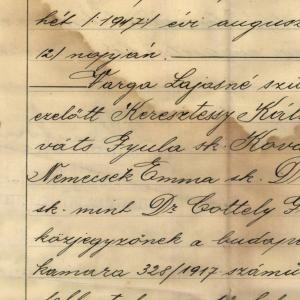 hét /:1917:/ évi augusz
12) napján.
Varga Lajosné szü
előtt Keresztezy Kát
váts Gyula sk. Ková
Nemecsek Emma sk. D
sk. mint Dr Cottely G
közjegyzőnek a budape
kamara 328/1917 számú